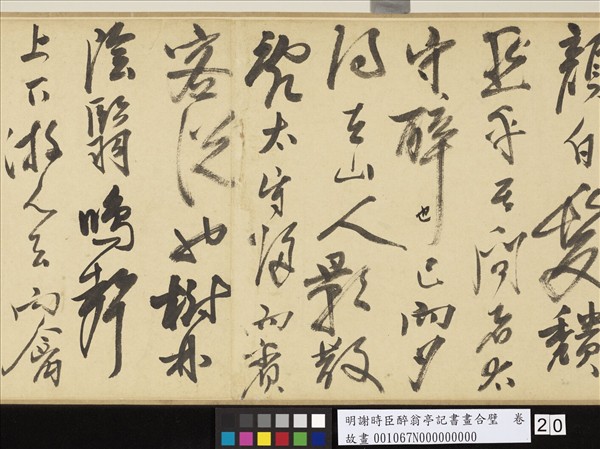 顏白髮穨
然乎其間者太
守醉也已而夕
陽在山人影散
亂太守歸而賓
客從也樹林
陰翳鳴聲
上下游人去而禽
明謝時臣醉翁亭記書畫合璧 卷
故畫 001067N000000000
20